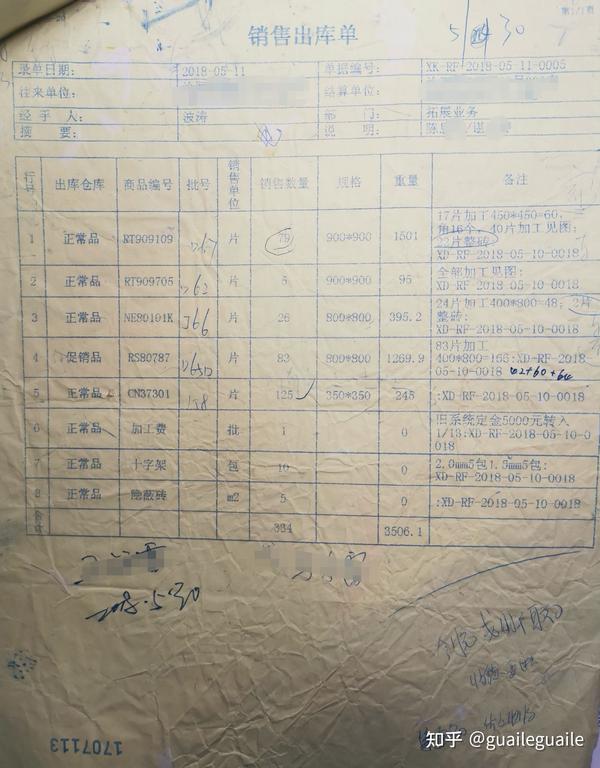 第1/1页
销售出库单
5/ 30
录单日期: 2018-05-11 单据编号: XK-RF-2018-05-11-0005
往来单位: 结算单位:
经手人: 波涛 部门: 拓展业务
摘要: 说明: 陈
行号 出库仓库 商品编号 批号 销售单位 销售数量 规格 重量 备注
1 正常品 RT909109 片 79 900*900 1501 17片加工450*450=60,
角16个,40片加工见图:
22片整砖:
XD-RF-2018-05-10-0018
2 正常品 RT909705 D62 片 5 900*900 95 全部加工见图:
XD-RF-2018-05-10-0018
3 正常品 NE80101K J66 片 26 800*800 395.2 24片加工400*800=48,2片
整砖:
XD-RF-2018-05-10-0018
4 促销品 RS80787 片 83 800*800 1269.9 83片加工
400*800=166:XD-RF-2018-
05-10-0018
5 正常品 CN37301 片 125 350*350 245 :XD-RF-2018-05-10-0018
6 正常品 加工费 批 1 0 旧系统定金5000元转入
1/13:XD-RF-2018-05-10-0
018
7 正常品 十字架 包 10 0 2.0mm5包1.5mm5包:
XD-RF-2018-05-10-0018
8 正常品 隐蔽砖 m2 5 0 :XD-RF-2018-05-10-0018
334 3506.1
2018.5.30
1707113
知乎 @guaileguaile